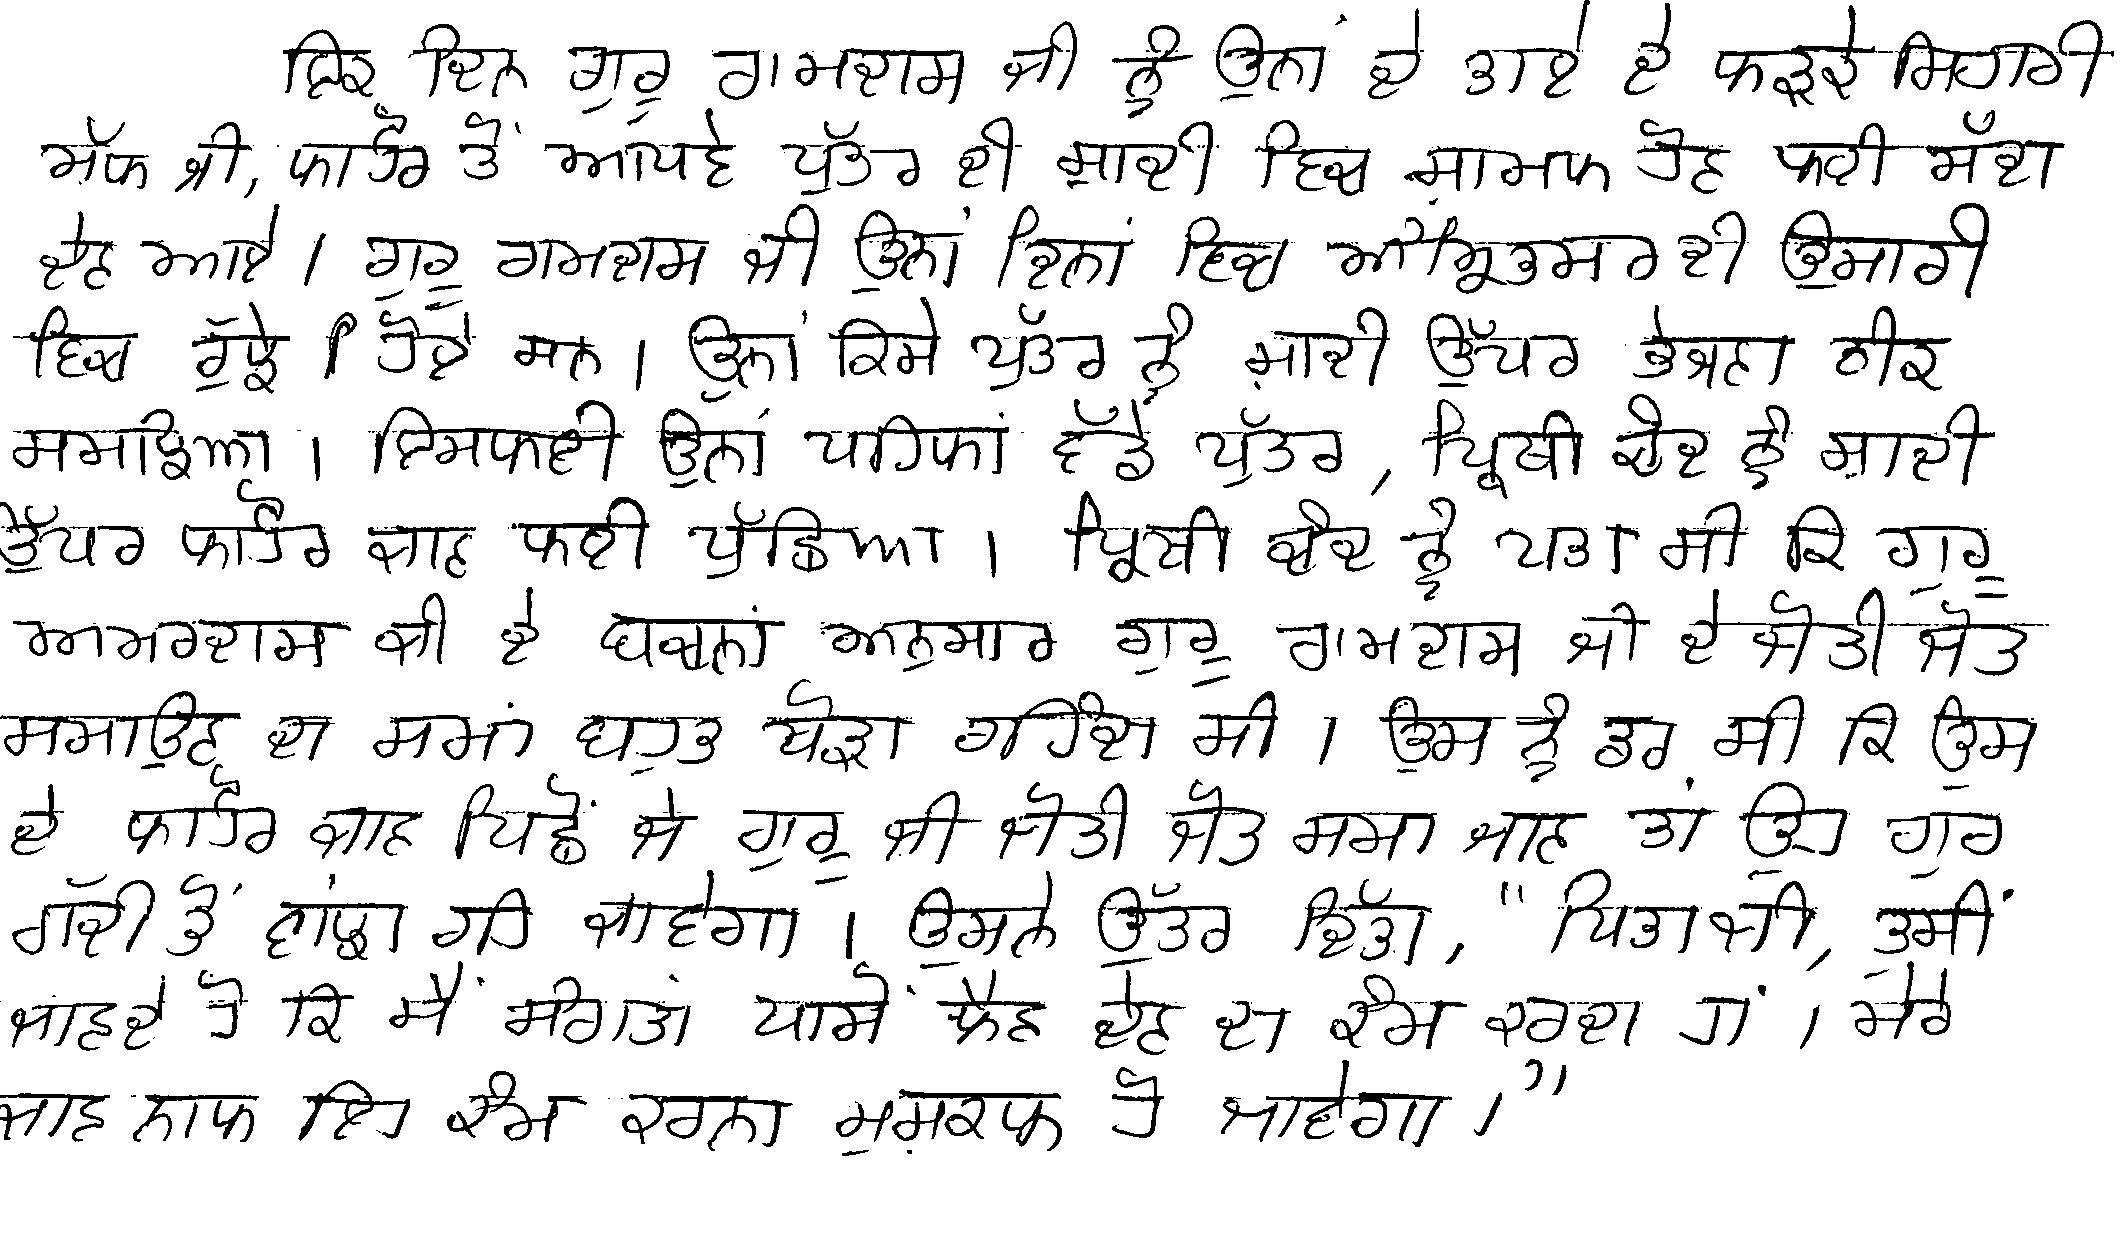 ਇਕ ਦਿਨ ਗੁਰੂ ਰਾਮਦਾਸ ਜੀ ਨੂੰ ਉਨਾਂ ਦੇ ਤਾਏ ਦੇ ਲੜਕੇ ਸਿਹਾਰੀ
ਮੱਲ ਜੀ, ਲਾਹੌਰ ਤੋਂ ਆਪਣੇ ਪੁੱਤਰ ਦੀ ਸ਼ਾਦੀ ਵਿਚ ਸ਼ਾਮਲ ਹੋਣ ਲਈ ਸੱਦਾ
ਦੇਣ ਆਏ। ਗੁਰੂ ਰਾਮਦਾਸ ਜੀ ਉਨਾਂ ਦਿਨਾਂ ਵਿਚ ਅੰਮ੍ਰਿਤਸਰ ਦੀ ਉਸਾਰੀ
ਵਿਚ ਰੁੱਝੇ ਹੋਏ ਸਨ। ਉਨਾਂ ਕਿਸੇ ਪੁੱਤਰ ਨੂੰ ਸ਼ਾਦੀ ਉੱਪਰ ਭੇਜਣਾ ਠੀਕ
ਸਮਝਿਆ। ਇਸਲਈ ਉਨਾਂ ਪਹਿਲਾਂ ਵੱਡੇ ਪੁੱਤਰ, ਪ੍ਰਿਥੀ ਚੰਦ ਨੂੰ ਸ਼ਾਦੀ
ਉੱਪਰ ਲਾਹੌਰ ਜਾਣ ਲਈ ਪੁੱਛਿਆ। ਪ੍ਰਿਥੀ ਚੰਦ ਨੂੰ ਪਤਾ ਸੀ ਕਿ ਗੁਰੂ
ਅਮਰਦਾਸ ਜੀ ਦੇ ਬਚਨਾਂ ਅਨੁਸਾਰ ਗੁਰੂ ਰਾਮਦਾਸ ਜੀ ਦੇ ਜੋਤੀ ਜੋਤ
ਸਮਾਉਣ ਦਾ ਸਮਾਂ ਬਹੁਤ ਥੋੜਾ ਰਹਿੰਦਾ ਸੀ। ਉਸ ਨੂੰ ਡਰ ਸੀ ਕਿ ਉਸ
ਦੇ ਲਾਹੌਰ ਜਾਣ ਪਿਛੋਂ ਜੇ ਗੁਰੂ ਜੀ ਜੋਤੀ ਜੋਤ ਸਮਾ ਜਾਣ ਤਾਂ ਉਹ ਗੁਰ
ਗੱਦੀ ਤੋਂ ਵਾਂਝਾ ਰਹਿ ਜਾਵੇਗਾ। ਉਸਨੇ ਉੱਤਰ ਦਿੱਤਾ, "ਪਿਤਾ ਜੀ, ਤੁਸੀਂ
ਜਾਣਦੇ ਹੋ ਕਿ ਮੈਂ ਸੰਗਤਾਂ ਪਾਸੋਂ ਲੈਣ ਦੇਣ ਦਾ ਕੰਮ ਕਰਦਾ ਹਾਂ। ਮੇਰੇ
ਜਾਣ ਨਾਲ ਇਹ ਕੰਮ ਕਰਨਾ ਮੁਸ਼ਕਲ ਹੋ ਜਾਵੇਗਾ।"